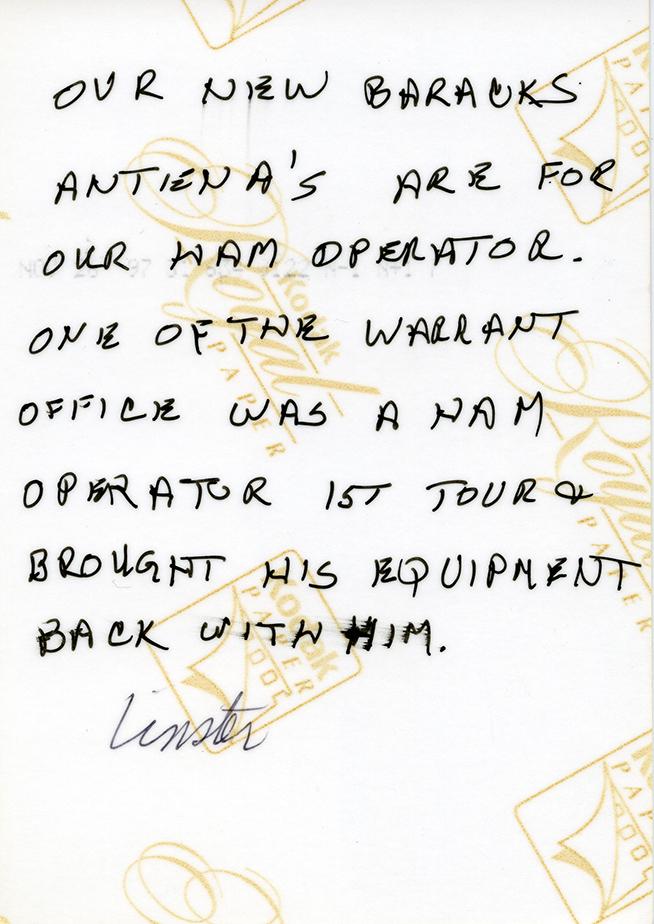 OUR NEW BARACKS
ANTIENA'S ARE FOR
OUR HAM OPERATOR.
ONE OF THE WARRANT
OFFICE WAS A HAM
OPERATOR 1ST TOUR &
BROUGHT HIS EQUIPMENT
BACK WITH HIM.
Linster
Kodak
Royal
PAPER